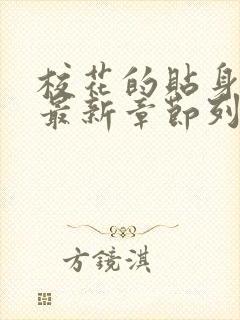 校花的貼身
最新章節列
方鏡淇